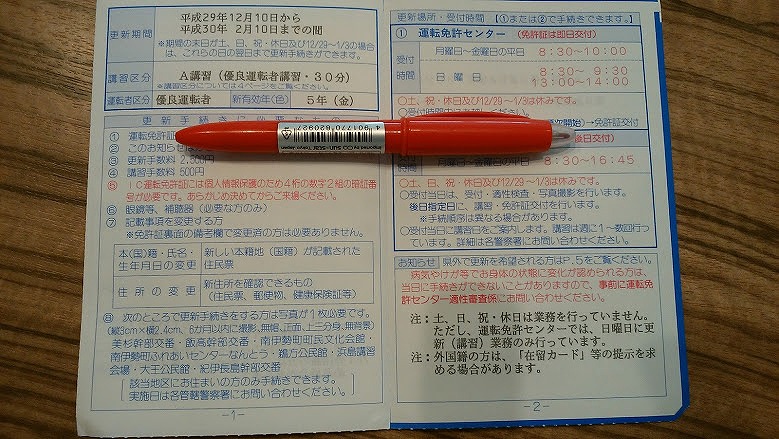 更新期間
平成29年12月10日から
平成30年 2月10日までの間
※期間の末日が土、日、祝・休日及び12/29～1/3の場合
は、これらの日の翌日まで更新手続きができます。
講習区分
A講習(優良運転者講習・30分)
※講習区分については4ページをご覧ください。
運転者区分
優良運転者
新有効年(色)
5年(金)
更新手続きに必要なもの
① 運転免許証
② このお知らせは
③ 更新手数料 2,500円
④ 講習手数料 500円
⑤ IC運転免許証には個人情報保護のため4桁の数字2組の暗証番
号が必要です。あらかじめ決めてからご来場ください。
⑥ 眼鏡等、補聴器(必要な方のみ)
⑦ 記載事項を変更する方
※免許証裏面の備考欄で変更済の方は必要ありません。
本(国)籍・氏名・
生年月日の変更
新しい本籍地(国籍)が記載された
住民票
住所の変更
新住所を確認できるもの
(住民票、郵便物、健康保険証等)
⑧ 次のところで更新手続きをする方は写真が1枚必要です。
(縦3cm×横2.4cm、6か月以内に撮影、無帽、正面、上三分身、無背景)
美杉幹部交番・飯高幹部交番・南伊勢町町民文化会館・
南伊勢町ふれあいセンターなんとう・鵜方公民館・浜島講習
会場・大王公民館・紀伊長島幹部交番
該当地区にお住まいの方のみ手続きできます。
実施日は各管轄警察署にお問い合わせください。
-1-
4 901770 820927
Imported by CO SUN-STAR Tokyo Japan
更新場所・受付時間 【①または②で手続きできます。】
① 運転免許センター (免許証は即日交付)
受付
時間
月曜日～金曜日の平日
8:30～10:00
日 曜 日
8:30～ 9:30
13:00～14:00
○土、祝・休日及び12/29～1/3は休みです。
次開始)→免許証交付
後日交付)
月曜日～金曜日の平日
8:30～16:45
○土、日、祝・休日及び12/29～1/3は休みです。
○受付当日は、受付・適性検査・写真撮影を行います。
後日指定日に、講習・免許証交付を行います。
※手続順序は異なる場合があります。
○受付当日に講習日をご案内します。講習は週に1～数回行っ
ています。詳細は各警察署にお問い合わせください。
お知らせ
県外で更新を希望される方はP.5をご覧ください。
病気やけが等でお身体の状態に変化が認められる方は、
当日に手続きができないことがありますので、事前に運転免
許センター適性審査係にお問い合わせ下さい。
注:土、日、祝・休日は業務を行っていません。
ただし、運転免許センターでは、日曜日に更
新(講習)業務のみ行っています。
注:外国籍の方は、「在留カード」等の提示を求
める場合があります。
-2-